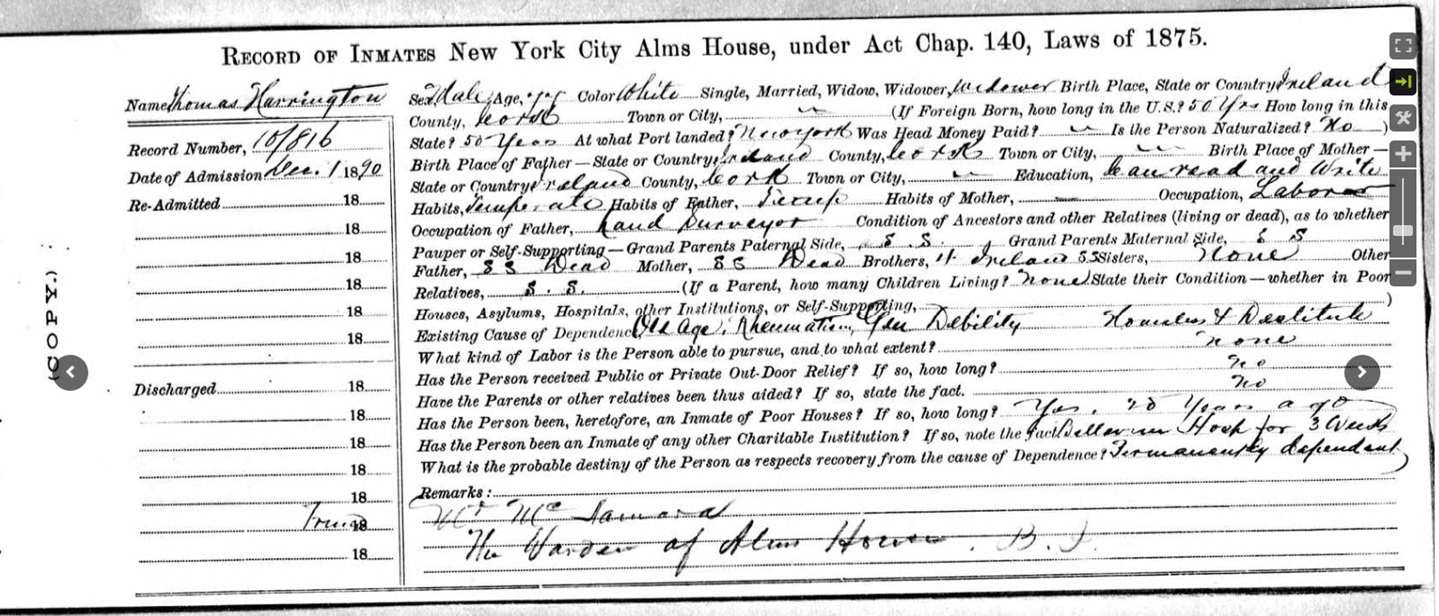 RECORD OF INMATES NEW YORK CITY ALMS HOUSE, under Act Chap. 140, Laws of 1875.
Name Thomas Harrington
Record Number, 10/816
Date of Admission Dec. 1 1890
Re-Admitted 18
18
18
18
18
18
Discharged 18
18
18
18
18
18
18
(COPY.)
Sex, Male Age, 77 Color White Single, Married, Widow, Widower, Widower Birth Place, State or Country, Ireland
County, Cork Town or City, (If Foreign Born, how long in the U.S.? 50 Yrs How long in this
State? 50 Years At what Port landed? New York Was Head Money Paid? Is the Person Naturalized? No )
Birth Place of Father—State or Country, Ireland County, Cork Town or City, Birth Place of Mother—
State or Country, Ireland County, Cork Town or City, Education, Can read and Write
Habits, Temperate Habits of Father, Temp Habits of Mother, Occupation, Laborer
Occupation of Father, Land Surveyor Condition of Ancestors and other Relatives (living or dead), as to whether
Pauper or Self-Supporting—Grand Parents Paternal Side, S. S. Grand Parents Maternal Side, S S
Father, SS Dead Mother, SS Dead Brothers, Ireland SS Sisters, None Other
Relatives, S. S. (If a Parent, how many Children Living? None State their Condition—whether in Poor
Houses, Asylums, Hospitals, other Institutions, or Self-Supporting, )
Existing Cause of Dependence, Old Age, Rheumatism, Gen Debility Homeless & Destitute
What kind of Labor is the Person able to pursue, and to what extent? None
Has the Person received Public or Private Out-Door Relief? If so, how long? No
Have the Parents or other relatives been thus aided? If so, state the fact. No
Has the Person been, heretofore, an Inmate of Poor Houses? If so, how long? Yes. 20 Years ago
Has the Person been an Inmate of any other Charitable Institution? If so, note the fact Bellevue Hosp for 3 Weeks
What is the probable destiny of the Person as respects recovery from the cause of Dependence? Permanently dependant
Remarks:
Mr Mc
The Warden of Alms House. B. I.